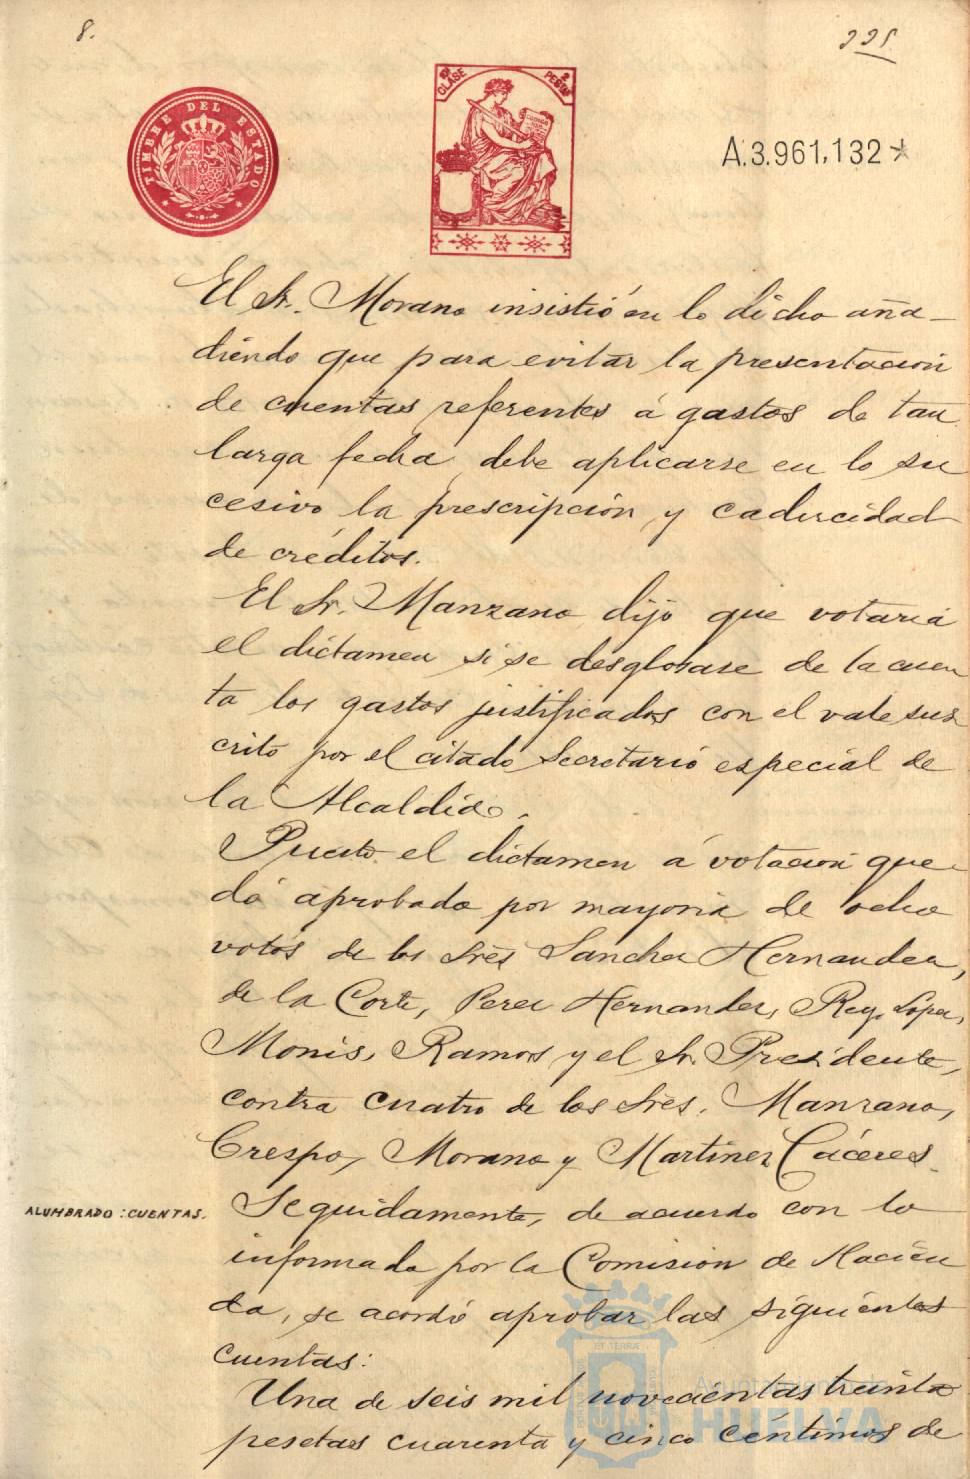 8.
225
TIMBRE DEL ESTADO
10ª CLASE
2 PESETAS
A.3.961,132*
El Sr. Morano insistió en lo dicho aña-
diendo que para evitar la presentación
de cuentas referentes á gastos de tan
larga fecha debe aplicarse en lo su
cesivo la prescripción y caducidad
de créditos.
El Sr. Manzano dijo que votaria
el dictamen si se desglosase de la cuen
ta los gastos justificados con el vale sus
crito por el citado Secretario especial de
la Alcaldia.
Puesto el dictamen á votación que
dó aprobado por mayoria de ocho
votos de los Sres Sanchez Hernandez,
de la Corte, Perez Hernandez, Rey, López,
Monis, Ramos y el Sr. Presidente,
contra cuatro de los Sres. Manzano,
Crespo, Morano y Martinez Cáceres.
ALUMBRADO: CUENTAS.
Seguidamente, de acuerdo con lo
informado por la Comision de Hacien
da, se acordó aprobar las siguientes
cuentas:
Una de seis mil novecientas treinta
pesetas cuarenta y cinco céntimos de
Ayuntamiento de
HUELVA